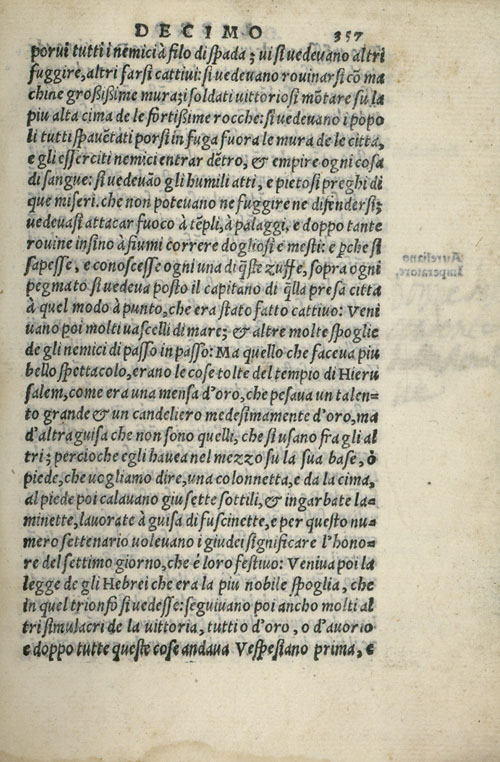 DECIMO 357
porui tutti i nemici à filo di spada; ui si uedeuano altri
fuggire, altri farsi cattiui: si uedeuano rouinarsi cõ ma
chine großißime mura; i soldati uittoriosi mõtare su la
piu alta cima de le fortißime rocche: si uedeuano i popo
li tutti spauẽtati porsi in fuga fuora le mura de le citta,
e gli esserciti nemici entrar dẽtro, & empire ogni cosa
di sangue: si uedeuão gli humili atti, e pietosi preghi di
que miseri. che non poteuano ne fuggire ne difendersi;
uedeuasi attacar fuoco à tẽpli, à palaggi, e doppo tante
rouine insino à fiumi correre dogliosi e mesti: e ꝑche si
sapesse, e conoscesse ogni una di q̃ste zuffe, sopra ogni
pegmato si uedeua posto il capitano di q̃lla presa citta
à quel modo à punto, che era stato fatto cattiuo: Veni
uano poi molti uascelli di mare; & altre molte spoglie
de gli nemici di passo in passo: Ma quello che faceua piu
bello spettacolo, erano le cose tolte del tempio di Hieru
salem, come era una mensa d'oro, che pesaua un talen=
to grande & un candeliero medesimamente d'oro, ma
d'altra guisa che non sono quelli, che si usano fra gli al
tri; percioche egli hauea nel mezzo su la sua base, ò
piede, che uogliamo dire, una colonnetta, e da la cima,
al piede poi calauano giu sette sottili, & ingarbate la=
minette, lauorate à guisa di fuscinette, e per questo nu=
mero settenario uoleuano i giudei significare l'hono=
re del settimo giorno, che é loro festiuo: Veniua poi la
legge de gli Hebrei che era la piu nobile spoglia, che
in quel trionfo si uedesse: seguiuano poi ancho molti al
tri simulacri de la uittoria, tutti o d'oro, o d'auorio
e doppo tutte queste cose andaua Vespesiano prima, e
Aureliano
Imperatore.